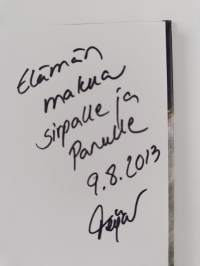 Elämän
makua
Sirpalle ja
Panulle
9.8.2013